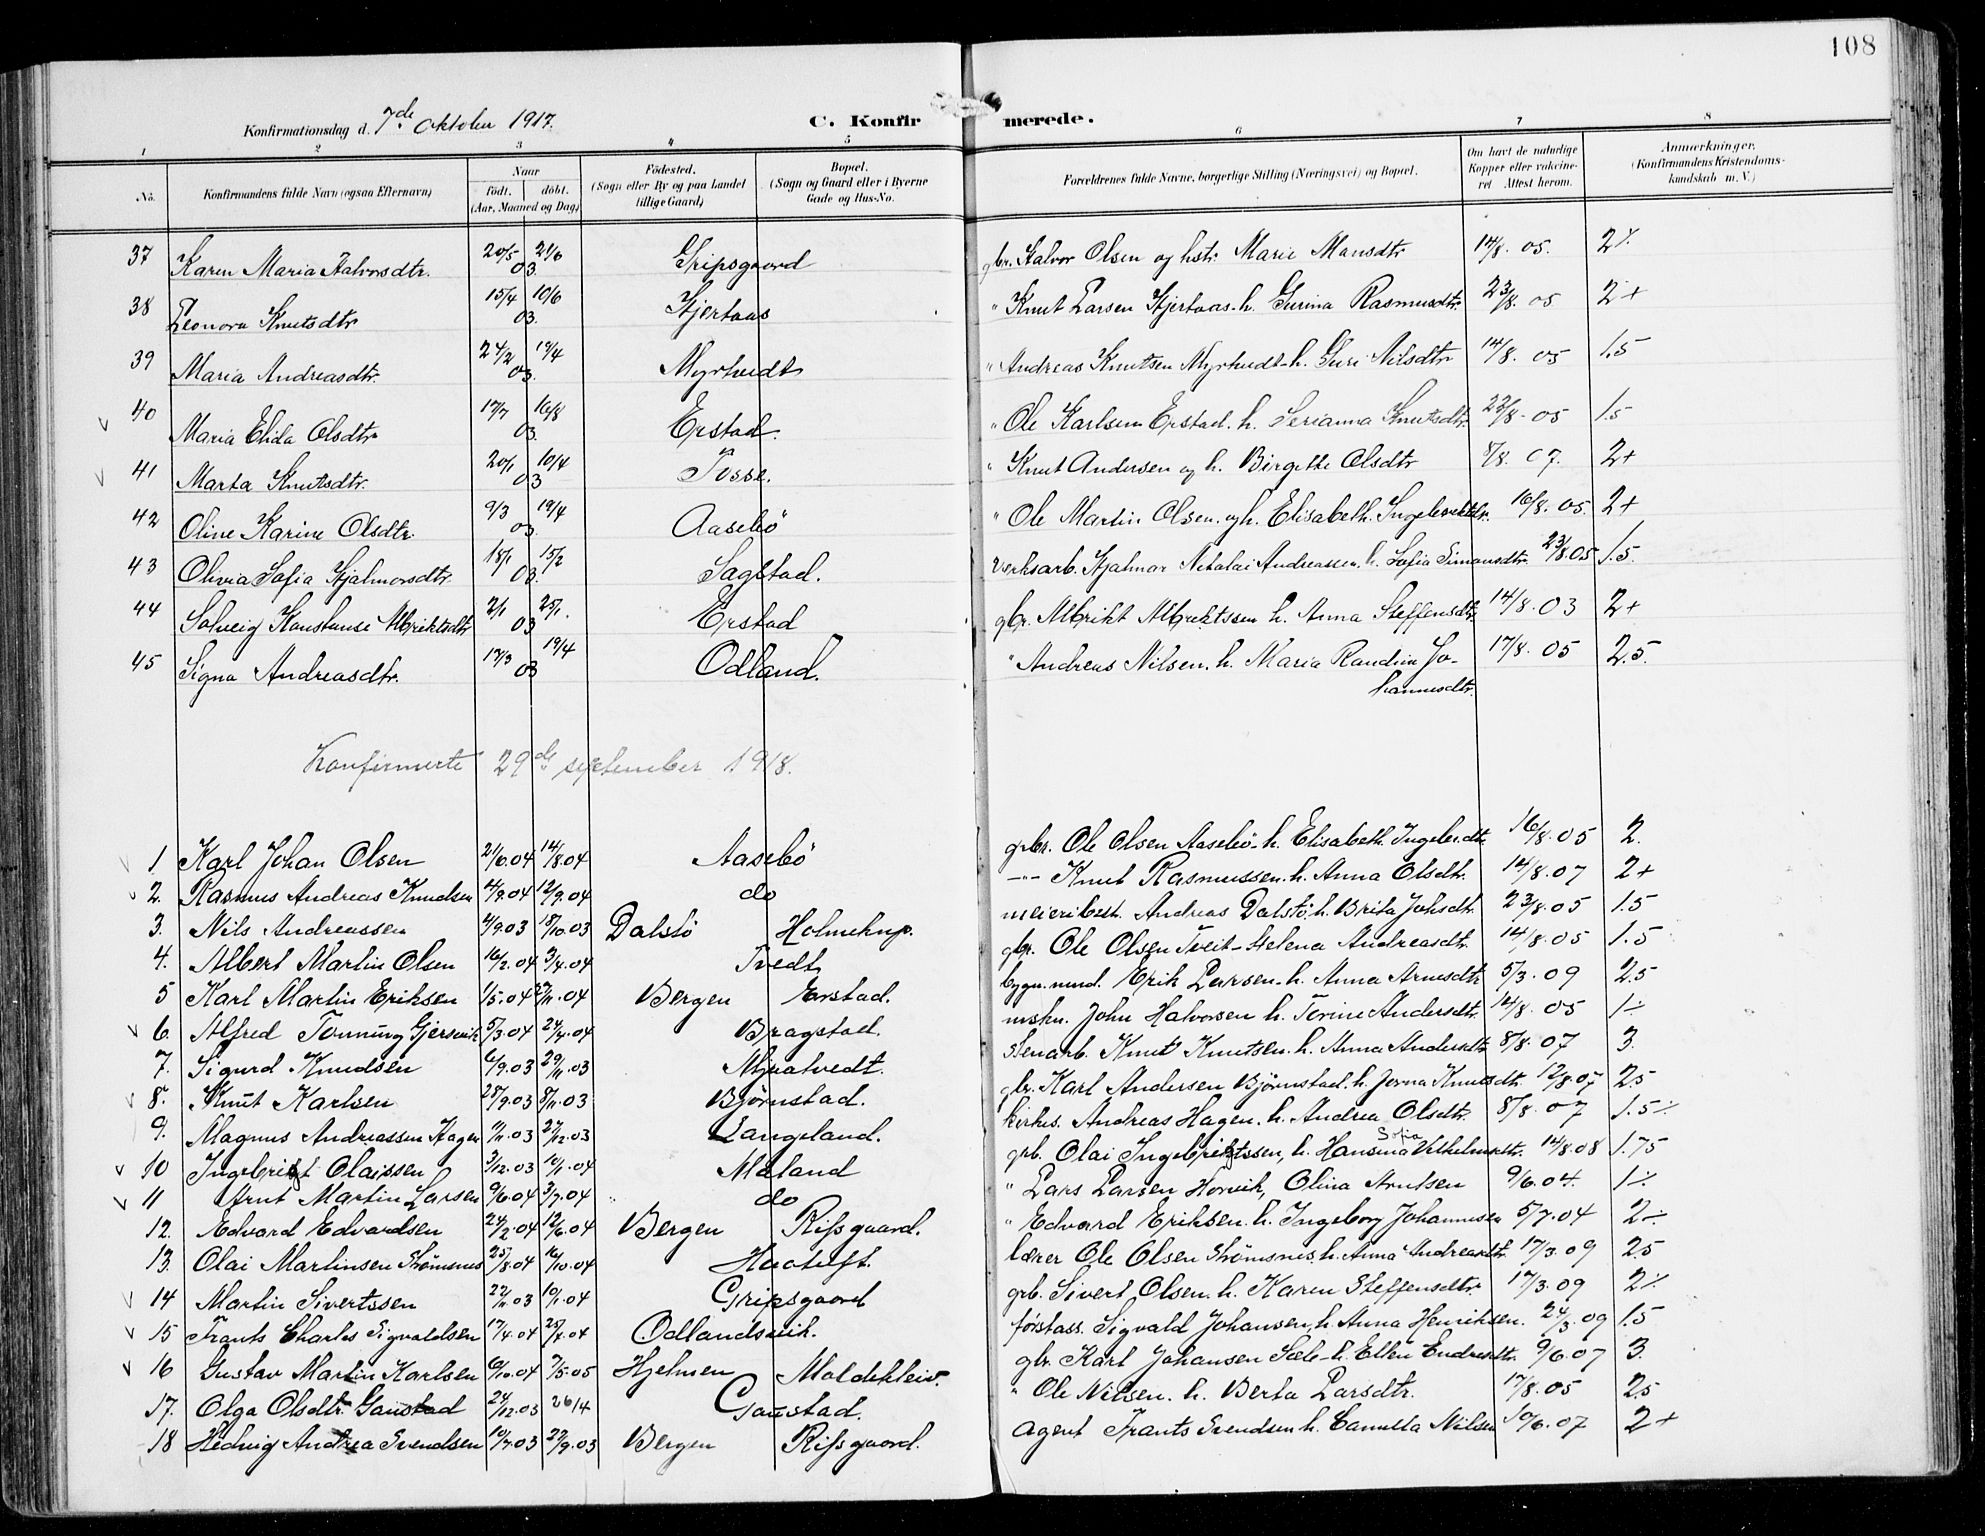 108
Konfirmationsdag d. 7de Oktober 1917.
C. Konfirmerede.
1 2 3 4 5 6 7 8
No.
Konfirmandens fulde Navn (ogsaa Efternavn)
Naar
født. døbt.
(Aar, Maaned og Dag)
Fødested.
(Sogn eller By og paa Landet
tillige Gaard)
Bopæl.
(Sogn og Gaard eller i Byerne
Gade og Hus-No.
Forældrenes fulde Navne, borgerlige Stilling (Næringsvei) og Bopæl.
Om havt de naturlige
Kopper eller vakcine-
ret Attest herom.
Anmærkninger,
(Konfirmandens Kristendoms-
kundskab m. V.)
37 Karen Maria Halvorsdtr. 20/5 21/6 03. Gripsgaard gbr. Halvor Olsen og hstr. Marie Mansdtr 14/8. 05. 2 ÷
38 Leonora Knutsdtr 15/4 10/6 03. Hjertaas " Knut Larsen Hjertaas. h. Gurina Rasmusdtr. 23/8. 05 2+
39 Maria Andreasdtr. 24/2 19/4 03. Myrtvedt " Andreas Knutsen Myrtvedt. h. Guri Nilsdtr 14/8. 05 1.5
40 Maria Elida Olsdtr 17/7 16/8 03. Erstad. " Ole Karlsen Erstad. h. Serianna Knutsdtr 23/8. 05 1.5
41 Marta Knutsdtr. 20/1 10/4 03 Tosse. " Knut Andersen og h. Birgette Olsdtr 8/8. 07. 2+
42 Oline Karine Olsdtr. 9/3 19/4 03 Aasebö " Ole Martin Olsen. og h. Elisabeth. 16/8. 05. 2+
43 Olivia Sofia Hjalmarsdtr. 18/1 15/2 03. Sagstad. Verksarb. Hjalmar Nikolai Andreassen. h. Sofia Simonsdtr. 23/8.05 1.5.
44 Solveig Konstanse Albriktsdtr 2/1 25/1. 03 Erstad gbr. Albrikt Albriktssen h. Anna Steffensdtr 14/8. 03 2+
45 Signa Andreasdtr. 17/3 19/4 03 Odland. " Andreas Nilsen. h. Maria Randina Jo- 17/8. 05 2.5.
hannesdtr.
Konfirmerte 29de september 1918.
1 Karl Johan Olsen 21/6.04 14/8.04 Aasebö gbr. Ole Olsen Aasebö. h. Elisabeth. Ingebr.dtr. 16/8. 05 2.
2. Rasmus Andreas Knudsen 4/9.04 12/9.04 do -"- Knut Rasmussen. h. Anna Olsdtr. 14/8. 07 2+
3. Nils Andreassen 4/9.03 18/10.03 Dalstö Holmeknap. meieribest. Andreas Dalstö. h. Brita Johsdtr. 23/8. 05 1.5
4. Albert Martin Olsen 16/2.04 3/4.04 Tvedt gbr. Ole Olsen Tveit - Helena Andreasdtr. 14/8. 05 1.5
5 Karl Martin Eriksen 1/5.04 27/11.04 Bergen Erstad. bygn. Erik Larsen. h. Anna Arnesdtr 5/3. 09 2.5
6. Alfred Tonning Gjersvik 5/3.04 24/4.04 Bragstad. mskn. John Halvorsen h. Terine Andersdtr. 14/8. 05 1÷
7. Sigurd Knudsen 6/9.03 29/11.03 Mjatvedt. Stenarb. Knut Knutsen. h. Anna Andersdtr 8/8. 07 3.
8. Knut Karlsen 28/9.03 8/11.03 Bjørnstad. gbr. Karl Andersen Bjørnstad. h. Jorna Knutsdtr. 12/8.07 2.5
9. Magnus Andreassen Hagen 11/11.03 27/12.03 Langeland. kirkes. Andreas Hagen. h. Andrea Olsdtr. 8/8. 07 1.5÷
10 Ingebrigt Olaissen 3/12.03 10/1.04 Mæland grb. Olai Ingebrigtssen, h. Hansina Sofia Vilhelmsdtr. 14/8.08 1.75
11 Arnt Martin Larsen 9/6.04 3/7.04 do " Lars Larsen Horvik, Olina Arntsen 9/6.04. 1÷
12. Edvard Edvardsen 24/2.04 12/6.04 Bergen Rissgaard. " Edvard Eriksen. h. Ingeborg Johannesen 5/7.04 2÷
13. Olai Martinsen Strømsnes 25/8.04 16/10.04 Haatuft. lærer Ole Olsen Strømsnes. h. Anna Andreasdtr. 17/3.09 2.5
14 Martin Sivertssen 22/11.03 10/1.04 Gripsgaard grb. Sivert Olsen. h. Karen Steffensdtr. 17/3.09 2÷
15 Frants Charles Sigvaldsen 17/4.04 25/4.04 Odlandsvik. førstass. Sigvald Johansen, h. Anna Henriksen. 24/3.09 1.5
16 Gustav Martin Karlsen 6/10.04 7/5.05 Hjelmen Moldekleiv. gbr. Karl Johansen Sæle. h. Ellen Endresdtr. 9/6.07 3.
17. Olga Olsdtr. Gaustad 24/12.03 26/4 Gaustad. " Ole Nilsen. h. Berta Larsdtr. 17/8.05 2.5
18 Hedvig Andrea Svendsen 10/7.03 27/9.03 Bergen Rissgaard. Agent Frants Svendsen h. Camilla Nilsen 10/6.07 2+